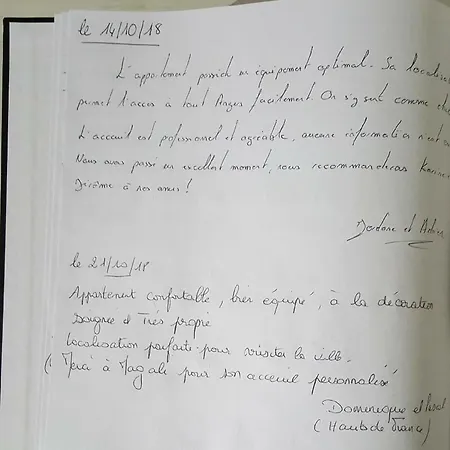 le 14/10/18
L'appartement possède un équipement optimal. Sa
permet l'accès à tout Angers facilement. On s'y sent comme
L'accueil est professionnel et agréable, aucune information n'est
Nous avons passé un excellent moment, nous recommanderons
Jérôme à nos amis !
et
le 21/10/18
Appartement confortable, bien équipé, à la décoration
soignée et très propre
Localisation parfaite pour visiter la ville.
Merci à Magali pour son acceuil personnalisé
Dominique et
(Hauts de France)